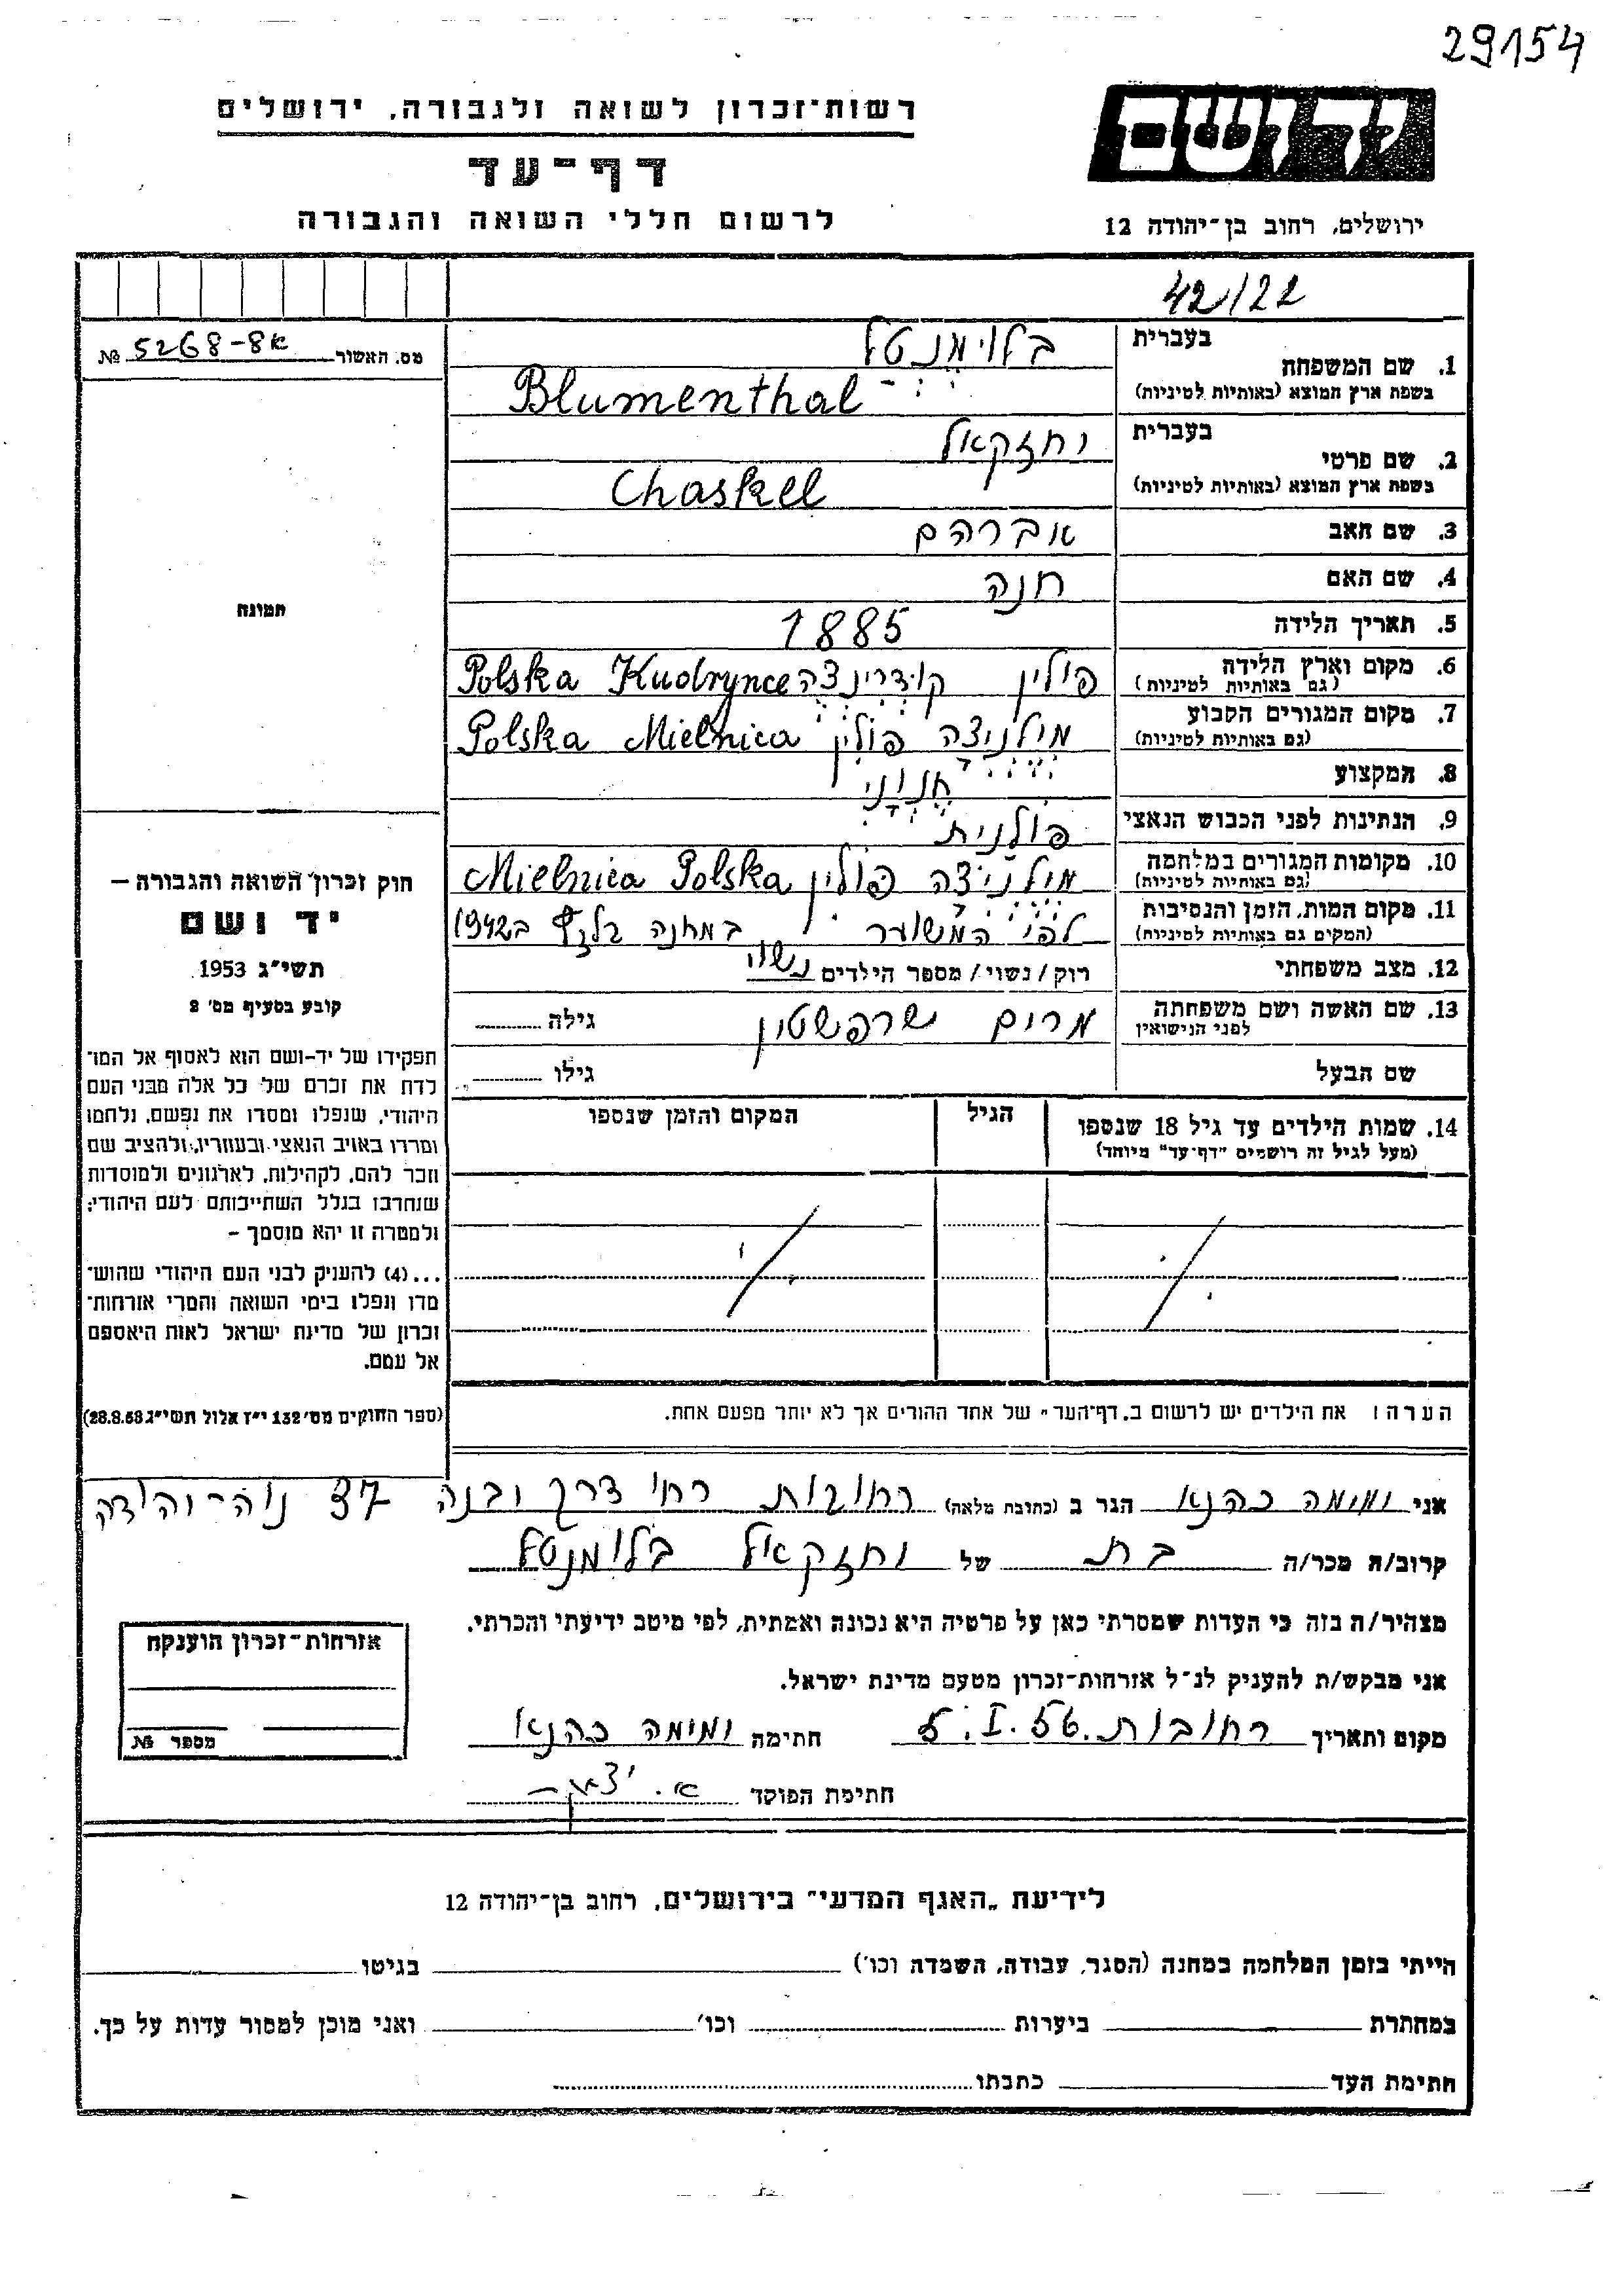 29154
רשות־זכרון לשואה ולגבורה, ירושלים
יד ושם
דף־עד
לרשום חללי השואה והגבורה
ירושלים, רחוב בן־יהודה 12
42/22
מס. האשור 5268-8א №
1. שם המשפחה
בעברית בלוימנטל
בשפת ארץ המוצא (באותיות לטיניות) Blumenthal
2. שם פרטי
בעברית יחזקאל
בשפת ארץ המוצא (באותיות לטיניות) Chaskel
3. שם האב אברהם
4. שם האם חנה
תמונה
5. תאריך הלידה 1885
6. מקום וארץ הלידה פולין קודרינצה Polska Kudrynce
(גם באותיות לטיניות)
7. מקום המגורים הקבוע מילניצה פולין Polska Mielnica
(גם באותיות לטיניות)
8. המקצוע חנוני
9. הנתינות לפני הכבוש הנאצי פולנית
10. מקומות המגורים במלחמה מילניצה פולין Mielnica Polska
(גם באותיות לטיניות)
11. מקום המות, הזמן והנסיבות לפי המשוער במחנה בלזץ ב1942
(המקום גם באותיות לטיניות)
12. מצב משפחתי רוק/נשוי/מספר הילדים נשוי
13. שם האשה ושם משפחתה מרים שרפשטין גילה
לפני הנישואין
שם הבעל גילו
14. שמות הילדים עד גיל 18 שנספו הגיל המקום והזמן שנספו
(מעל לגיל זה רושמים "דף־עד" מיוחד)
חוק זכרון השואה והגבורה –
יד ושם
תשי״ג 1953
קובע בסעיף מס׳ 2
תפקידו של יד-ושם הוא לאסוף אל המו־
לדת את זכרם של כל אלה מבני העם
היהודי, שנפלו ומסרו את נפשם, נלחמו
ומרדו באויב הנאצי ובעוזריו, ולהציב שם
וזכר להם, לקהילות, לארגונים ולמוסדות
שנחרבו בגלל השתייכותם לעם היהודי;
ולמטרה זו יהא מוסמך –
...(4) להעניק לבני העם היהודי שהוש־
מדו ונפלו בימי השואה והמרי אזרחות־
זכרון של מדינת ישראל לאות היאספם
אל עמם.
(ספר החוקים מס׳ 132 י״ז אלול תשי״ג 28.8.53)
הערה: את הילדים יש לרשום ב„דף־העד״ של אחד ההורים אך לא יותר מפעם אחת.
אני ימימה כהנא הגר ב (כתובת מלאה) רחובות רח׳ דרך יבנה 37 נוה-יהודה
קרוב/ה מכר/ה בת של יחזקאל בלומנטל
מצהיר/ה בזה כי העדות שמסרתי כאן על פרטיה היא נכונה ואמתית, לפי מיטב ידיעתי והכרתי.
אני מבקש/ת להעניק לנ״ל אזרחות־זכרון מטעם מדינת ישראל.
מקום ותאריך רחובות 5.I.56 חתימה ימימה כהנא
חתימת הפוקד
אזרחות־זכרון הוענקה
מספר №
לידיעת „האגף המדעי״ בירושלים, רחוב בן־יהודה 12
הייתי בזמן המלחמה במחנה (הסגר, עבודה, השמדה וכו׳) בגיטו
במחתרת ביערות וכו׳ ואני מוכן למסור עדות על כך.
חתימת העד כתבתו